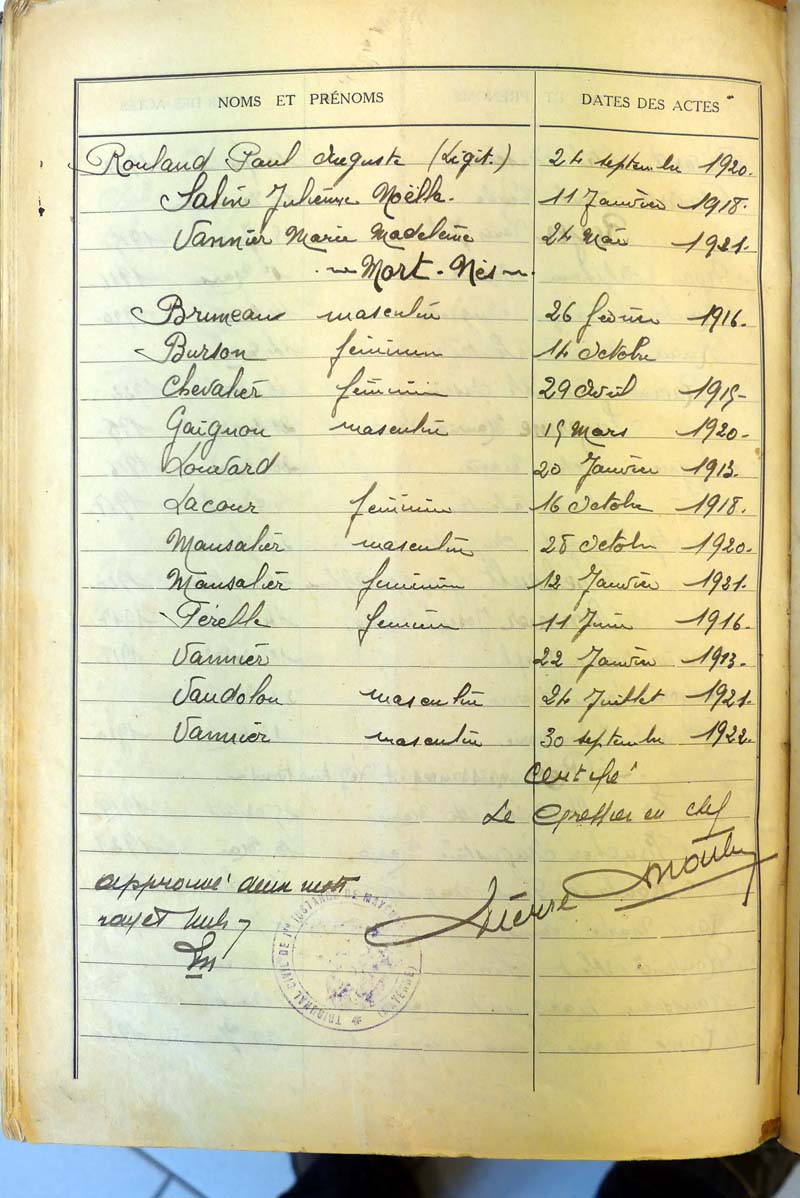 NOMS ET PRÉNOMS DATES DES ACTES
Rouland Paul Auguste (Légit.) 24 septembre 1920.
Salin Julienne Noëlle. 11 Janvier 1918.
Vannier Marie Madeleine 24 Mai 1921.
Mort-Nés
Bruneau masculin 26 février 1916.
Burson féminin 14 Octobre
Chevalier féminin 29 Avril 1915
Gaignon masculin 15 Mars 1920
Louvard 20 Janvier 1913.
Lacour féminin 16 Octobre 1918.
Mansalier masculin 28 Octobre 1920.
Mansalier féminin 12 Janvier 1921.
Férelle féminin 11 Juin 1916.
Vannier 22 Janvier 1913.
Vaudolon masculin 24 Juillet 1921.
Vannier masculin 30 septembre 1922.
Certifié
Le Greffier en chef
approuvé deux mots
rayés nuls
Pierre
TRIBUNAL CIVIL DE 1re INSTANCE DE MAYENNE (MAYENNE)